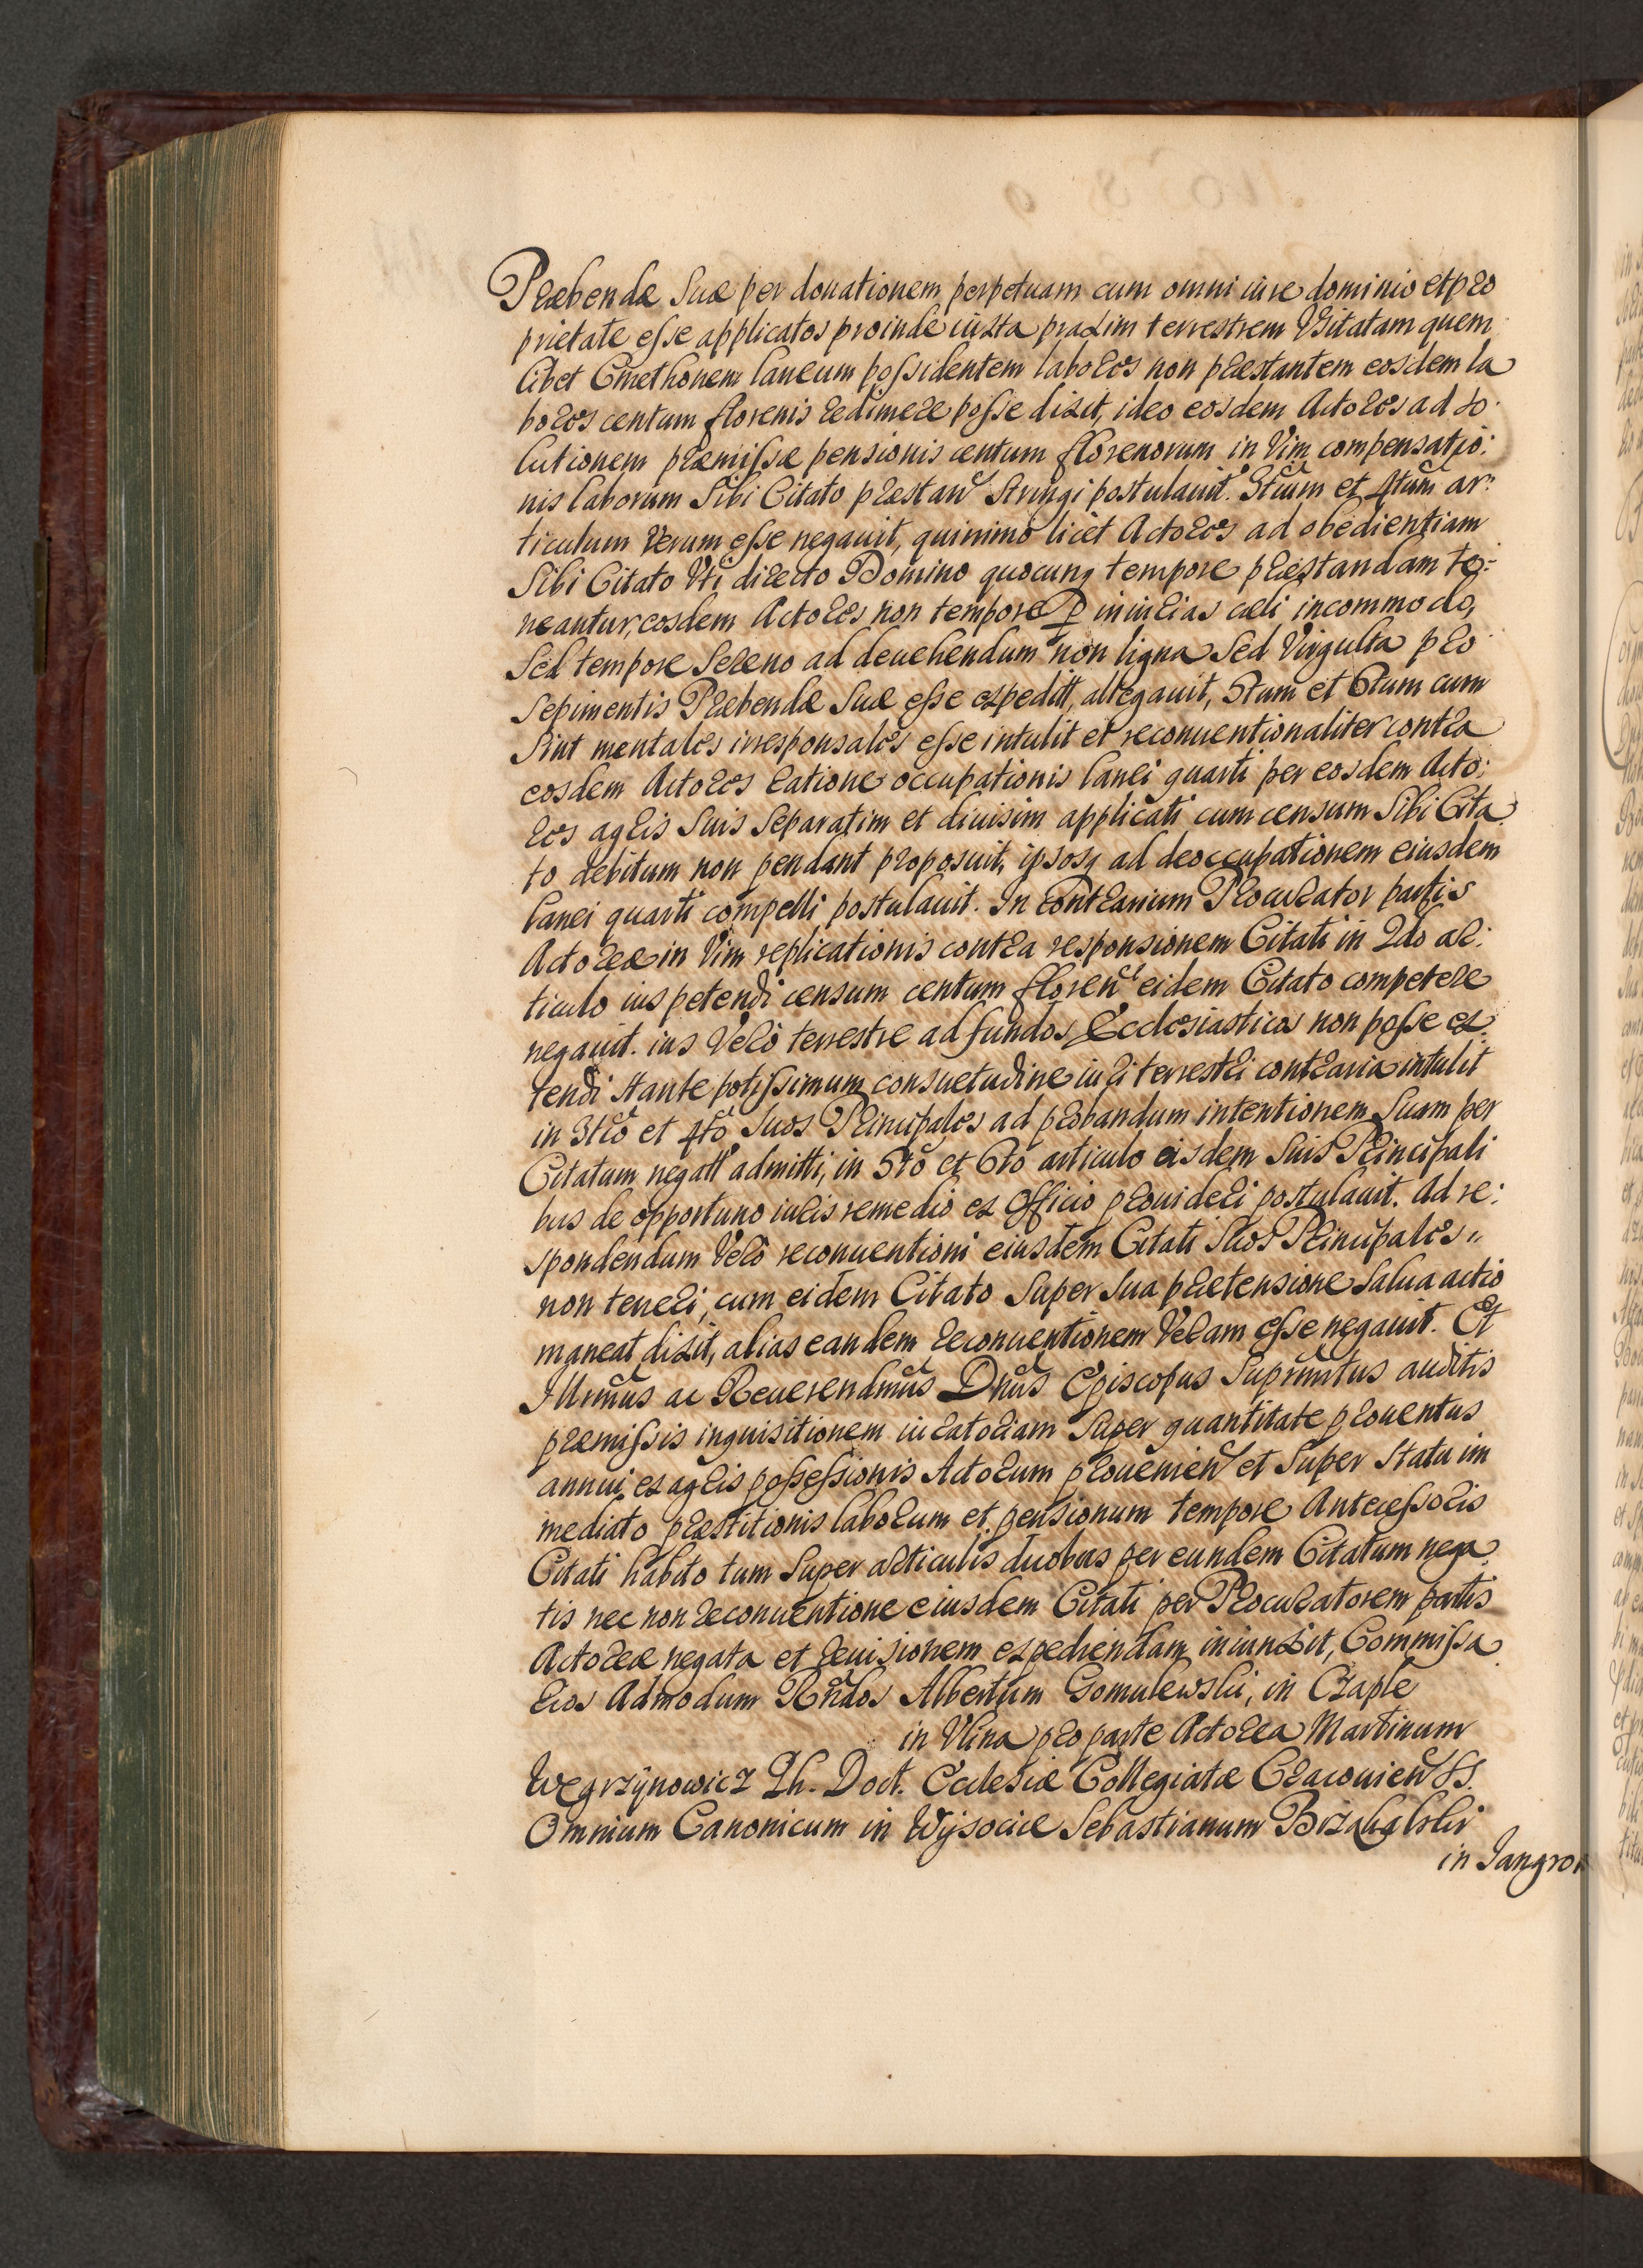 Præbendæ suæ per donationem perpetuam cum omni iure dominio et pro
prietate esse applicatos proinde iuxta praxim terrestrem Vsitatam quem
libet Cmethonem laneum possidentem labores non præstantem eosdem la
bores centum florenis redimere posse dixit, ideo eosdem Actores ad so
lutionem præmissæ pensionis centum florenorum in Vim compensatio:
nis laborum Sibi Citato præstan stringi postulauit. 3tium et 4tum ar:
ticulum Verum esse negauit, quinimo licet Actores ad obedientiam
Sibi Citato Vti directo Domino quocunq tempore præstandam te:
neantur, eosdem Actores non tempore p iniurias cæli incommodo,
sed tempore sereno ad deuehendum non ligna sed Virgulta pro
sepimentis Præbendæ suæ esse expeditt, allegauit, 5tum et 6tum cum
sint mentales irresponsales esse intulit et reconuentionaliter contra
eosdem Actores ratione occupationis lanei quarti per eosdem Acto:
res agris suis separatim et diuisim applicati cum censum Sibi Cita
to debitum non pendant proposuit, ipsosq ad deoccupationem eiusdem
lanei quarti compelli postulauit. In Contrarium Procurator partis
Actoreæ in Vim replicationis contra responsionem Citati in 2do ar:
ticulo ius petendi censum centum floren eidem Citato competere
negauit. ius Vero terrestre ad fundos Ecclesiasticos non posse ex
tendi stante potissimum consuetudine iuri terrestri contraria intulit
in 3tio et 4to suos Principales ad probandum intentionem suam per
Citatum negatt admitti, in 5to et 6to articulo eisdem suis Principali
bus de opportuno iuris remedio ex Officio prouideri postulauit. Ad re:
spondendum Vero reconuentioni eiusdem Citati suos Principales
non teneri, cum eidem Citato super sua prætensione salua actio
maneat dixit, alias eandem reconuentionem Veram esse negauit. Et
Illrmus ac Reuerendmus Dnus Episcopus Suprmtus auditis
præmissis inquisitionem iuratoriam super quantitate prouentus
annui ex agris possessionis Actorum prouenien et super statu im
mediato præstitionis laborum et pensionum tempore Antecessoris
Citati habito tum super articulis duobus per eundem Citatum nega
tis nec non reconuentione eiusdem Citati per Procuratorem partis
Actoreæ negata et reuisionem expediendam iniunxit, Commissa
rios Admodum Rndos Albertum Gomulewski, in Czaple
in Vlina pro parte Actorea Martinum
Wegrzÿnowicz Ph. Doct. Ecclesiæ Collegiatæ Cracouien SS.
Omnium Canonicum in Wÿsocice Sebastianum
in Jangrot